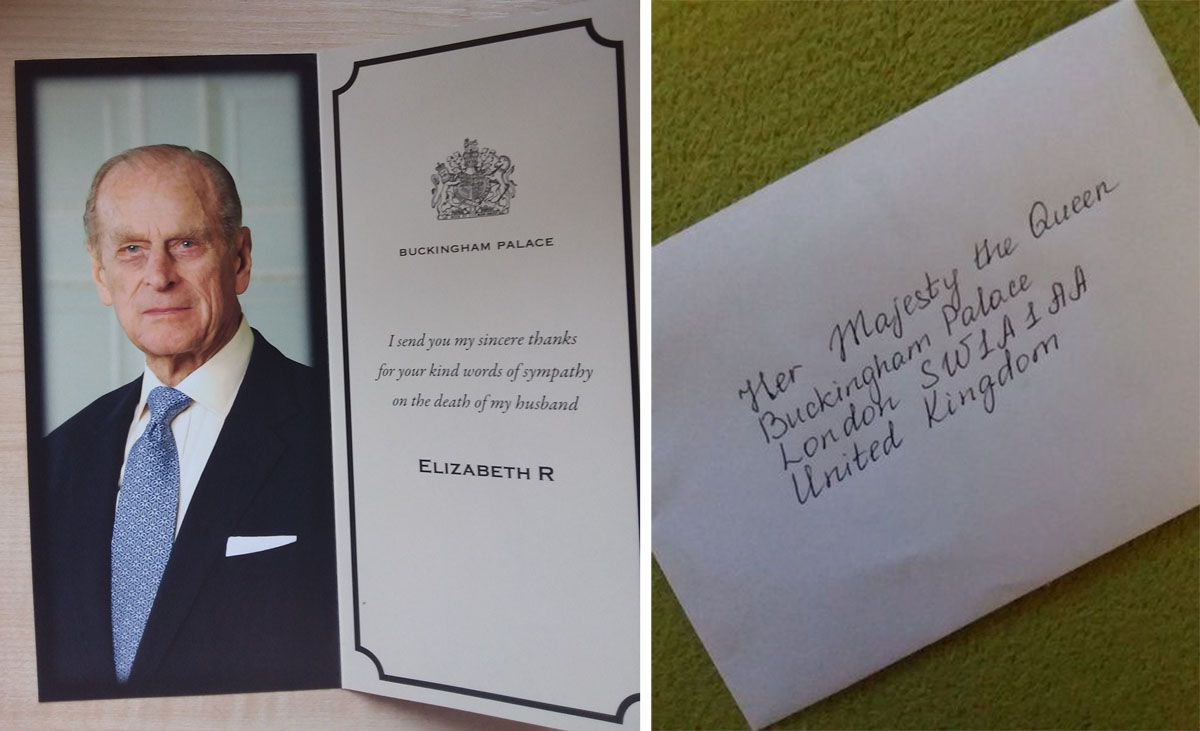 BUCKINGHAM PALACE
I send you my sincere thanks
for your kind words of sympathy
on the death of my husband
ELIZABETH R
Her Majesty the Queen
Buckingham Palace
London SW1A 1AA
United Kingdom